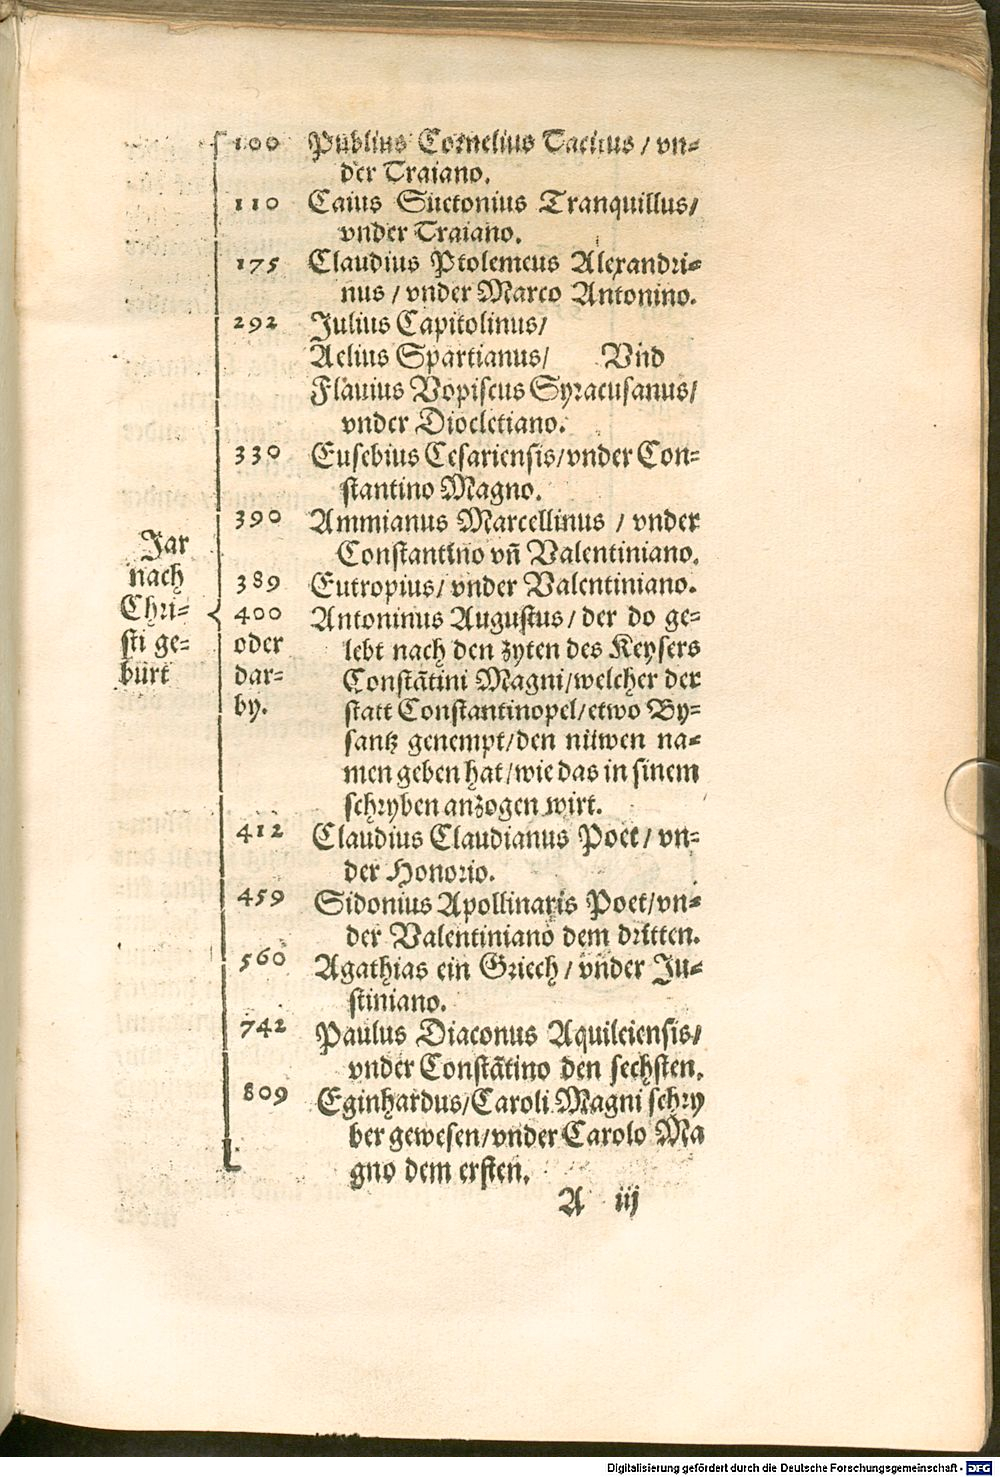 100 Publius Cornelius Tacitus / vn-
der Traiano.
110 Caius Suetonius Tranquillus/
vnder Traiano.
175 Claudius Ptolemeus Alexandri-
nus / vnder Marco Antonino.
292 Julius Capitolinus/
Aelius Spartianus/ Vnd
Flauius Vopiscus Syracusanus/
vnder Diocletiano.
330 Eusebius Cesariensis/vnder Con-
stantino Magno.
390 Ammianus Marcellinus / vnder
Constantino vñ Valentiniano.
389 Eutropius/ vnder Valentiniano.
Jar
nach
Chri-
sti ge-
burt
400
oder
dar-
by.
Antoninus Augustus/ der do ge-
lebt nach den zyten des Keysers
Constātini Magni/welcher der
statt Constantinopel/etwo By-
santz genempt/den nüwen na-
men geben hat/wie das in sinem
schryben anzogen wirt.
412 Claudius Claudianus Poet/ vn-
der Honorio.
459 Sidonius Apollinaris Poet/vn-
der Valentiniano dem dritten.
560 Agathias ein Griech/ vnder Ju-
stiniano.
742 Paulus Diaconus Aquileiensis/
vnder Constātino den sechsten.
809 Eginhardus/Caroli Magni schry
ber gewesen/vnder Carolo Ma
gno dem ersten.
A iij
Digitalisierung gefördert durch die Deutsche Forschungsgemeinschaft - DFG